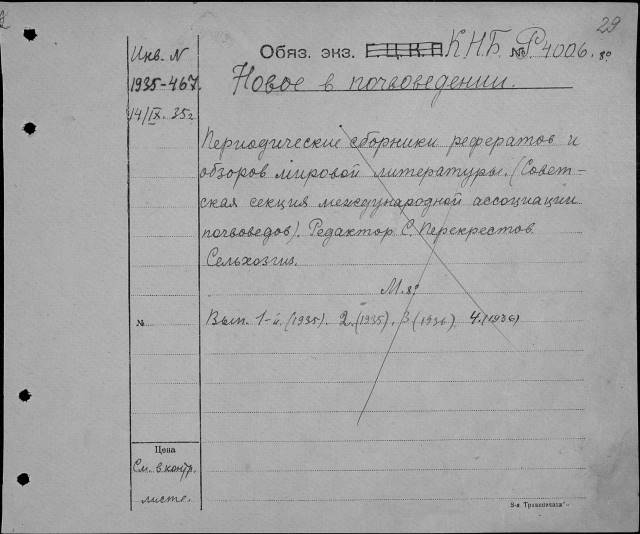 29
Инв. N
1935-467.
14/IX. 35г
Обяз. экз. Е.Ц.К.П КНБ № Р4006. 8°
Новое в почвоведении.
Периодические сборники рефератов и
обзоров мировой литературы. (Совет-
ская секция международной ассоциации
почвоведов). Редактор С. Перекрестов.
Сельхозгиз.
М. 8°
№
Вып. 1-й. (1935). 2. (1935). 3 (1936) 4. (1936)
Цена
См. в контр.
листе.